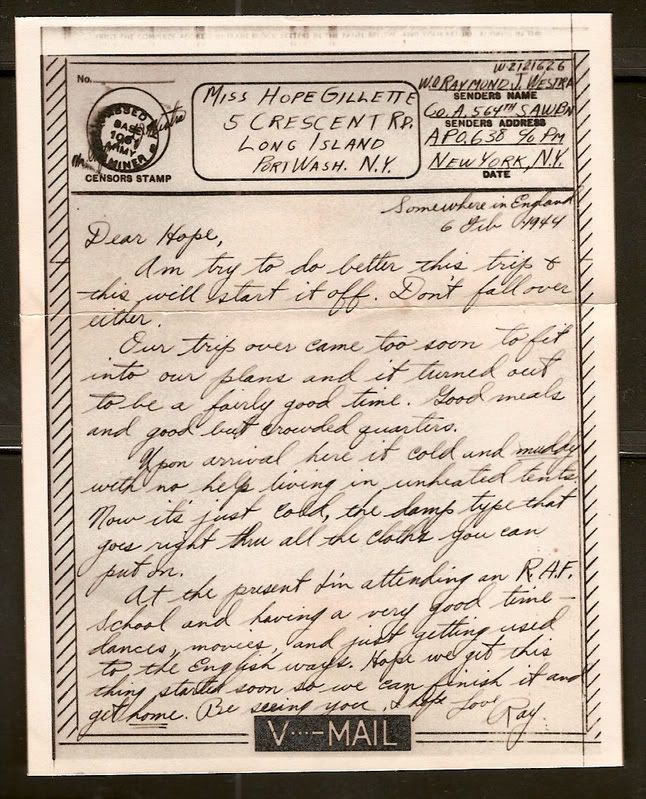 No.
PASSED
BASE
1061
ARMY
EXAMINER
CENSORS STAMP
MISS HOPE GILLETTE
5 CRESCENT RD.
LONG ISLAND
PORT WASH. N.Y.
W-2121626
W.O. RAYMOND J. WESTRA
SENDERS NAME
CO. A. 564TH S.A.W.BN
SENDERS ADDRESS
APO. 638 % PM
NEW YORK, N.Y.
DATE
Somewhere in England
6 Feb 1944
Dear Hope,
Am try to do better this trip &
this will start it off. Don't fall over
either.
Our trip over came too soon to fit
into our plans and it turned out
to be a fairly good time. Good meals
and good but crowded quarters.
Upon arrival here it cold and muddy
with no help living in unheated tents.
Now it's just cold, the damp type that
goes right thru all the clothes you can
put on.
At the present I'm attending an R.A.F.
School and having a very good time -
dances, movies, and just getting used
to the English ways. Hope we get this
thing started soon so we can finish it and
get home. Be seeing you, I hope Love
Ray.
V···–MAIL